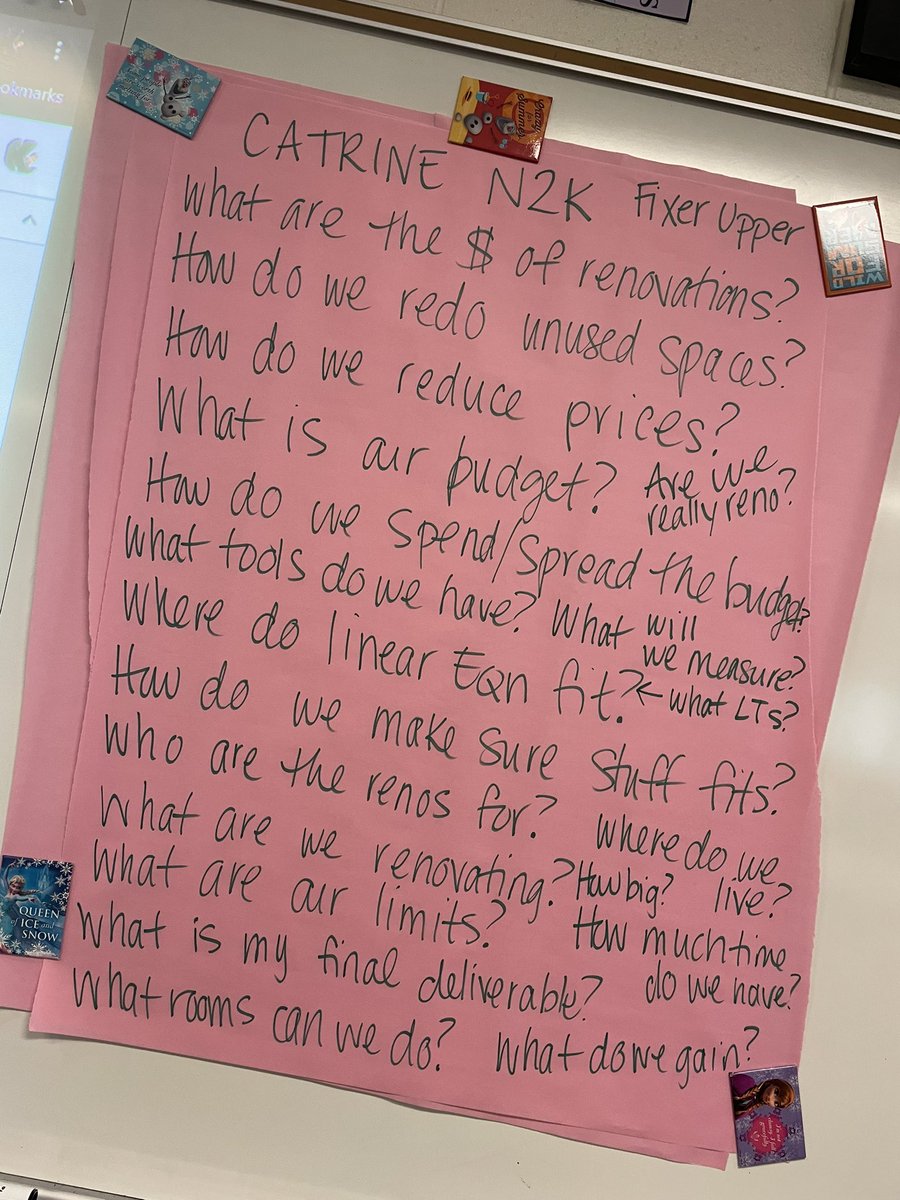 okmarks
CATRINE N2K Fixer Upper
What are the $ of renovations?
How do we redo unused spaces?
How do we reduce prices?
What is our budget? Are we
really reno?
How do we spend/spread the budget?
What tools do we have? What will
we measure?
Where do linear Eqn fit? ← what LTs?
How do we make sure stuff fits?
Who are the renos for? Where do we
live?
What are we renovating? How big?
What are our limits? How much time
do we have?
What is my final deliverable?
What rooms can we do? What do we gain?
QUEEN
of ICE and
SNOW